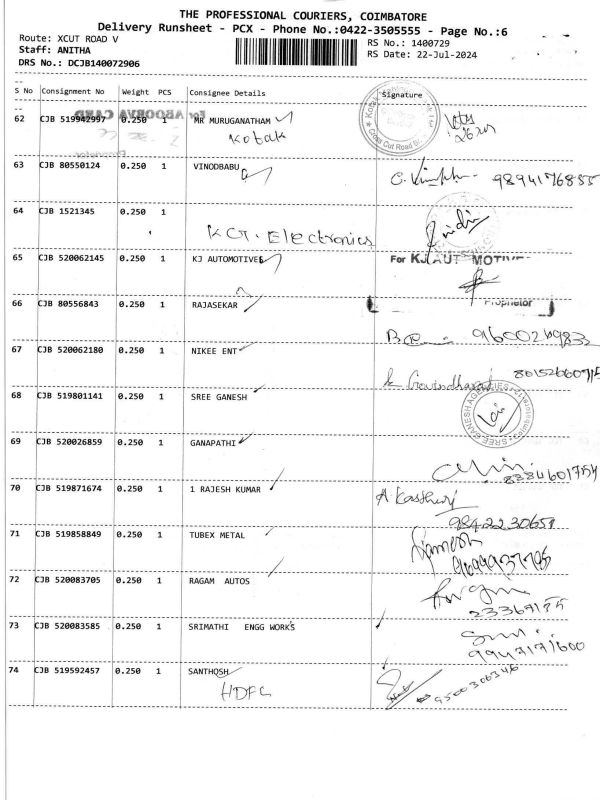 THE PROFESSIONAL COURIERS, COIMBATORE
Delivery Runsheet - PCX - Phone No.:0422-3505555 - Page No.:6
Route: XCUT ROAD V
RS No.: 1400729
Staff: ANITHA
RS Date: 22-Jul-2024
DRS No.: DCJB140072906
S No Consignment No Weight PCS Consignee Details Signature
62 CJB 519942997 0.250 1 MR MURUGANATHAM
Kotak
63 CJB 80550124 0.250 1 VINODBABU
9894176855
64 CJB 1521345 0.250 1
KCT. Electronics
65 CJB 520062145 0.250 1 KJ AUTOMOTIVE
For KJ AUTOMOTIVE
Proprietor
66 CJB 80556843 0.250 1 RAJASEKAR
67 CJB 520062180 0.250 1 NIKEE ENT
68 CJB 519801141 0.250 1 SREE GANESH
SREE GANESH AGENCIES
69 CJB 520026859 0.250 1 GANAPATHI
8384601754
70 CJB 519871674 0.250 1 1 RAJESH KUMAR
71 CJB 519858849 0.250 1 TUBEX METAL
72 CJB 520083705 0.250 1 RAGAM AUTOS
73 CJB 520083585 0.250 1 SRIMATHI ENGG WORKS
74 CJB 519592457 0.250 1 SANTHOSH
HDFC
9500306346